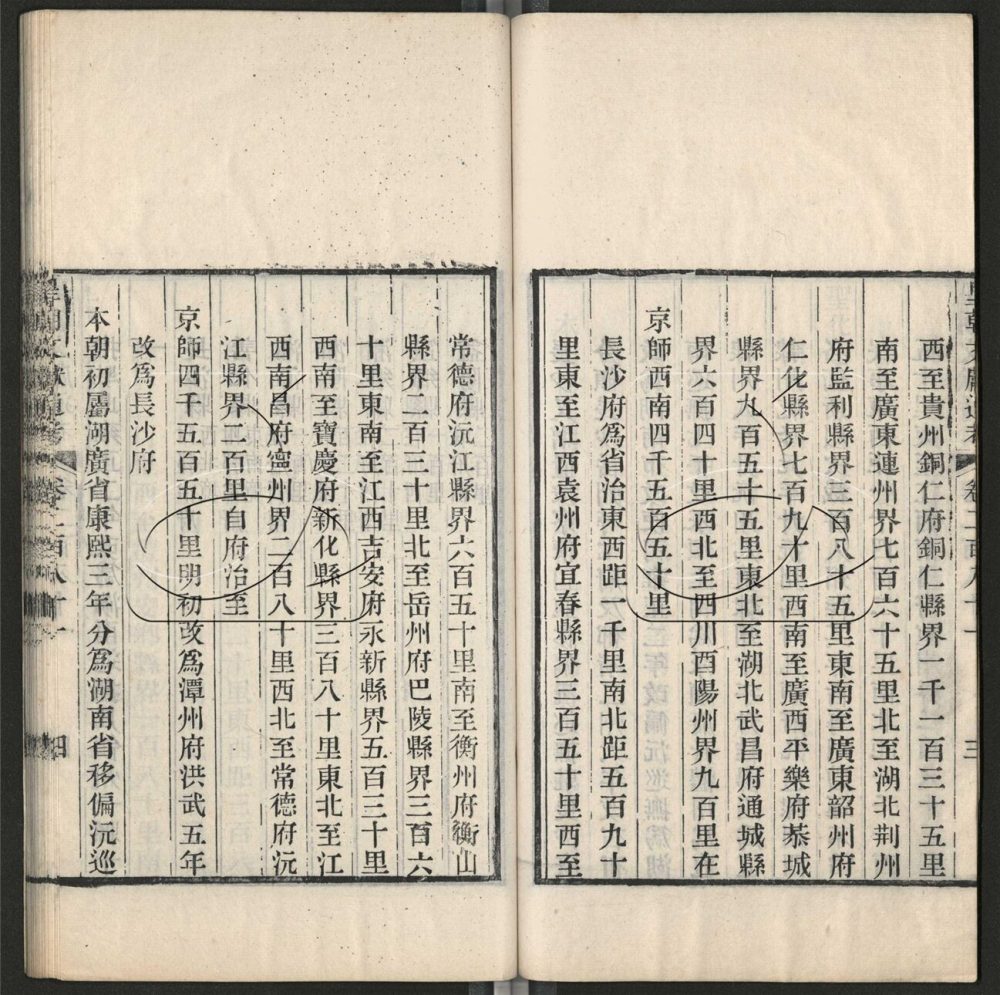 皇朝文獻通考 卷二百八十一 三
西至貴州銅仁府銅仁縣界一千一百三十五里
南至廣東連州界七百六十五里北至湖北荆州
府監利縣界三百八十五里東南至廣東韶州府
仁化縣界七百九十里西南至廣西平樂府恭城
縣界九百五十五里東北至湖北武昌府通城縣
界六百四十里西北至四川酉陽州界九百里在
京師西南四千五百五十里
長沙府爲省治東西距一千里南北距五百九十
里東至江西袁州府宜春縣界三百五十里西至
常德府沅江縣界六百五十里南至衡州府衡山
縣界二百三十里北至岳州府巴陵縣界三百六
十里東南至江西吉安府永新縣界五百三十里
西南至寶慶府新化縣界三百八十里東北至江
西南昌府寧州界二百八十里西北至常德府沅
江縣界二百里自府治至
京師四千五百五十里明初改爲潭州府洪武五年
改爲長沙府
本朝初屬湖廣省康熙三年分爲湖南省移偏沅巡
皇朝文獻通考 卷二百八十一 四